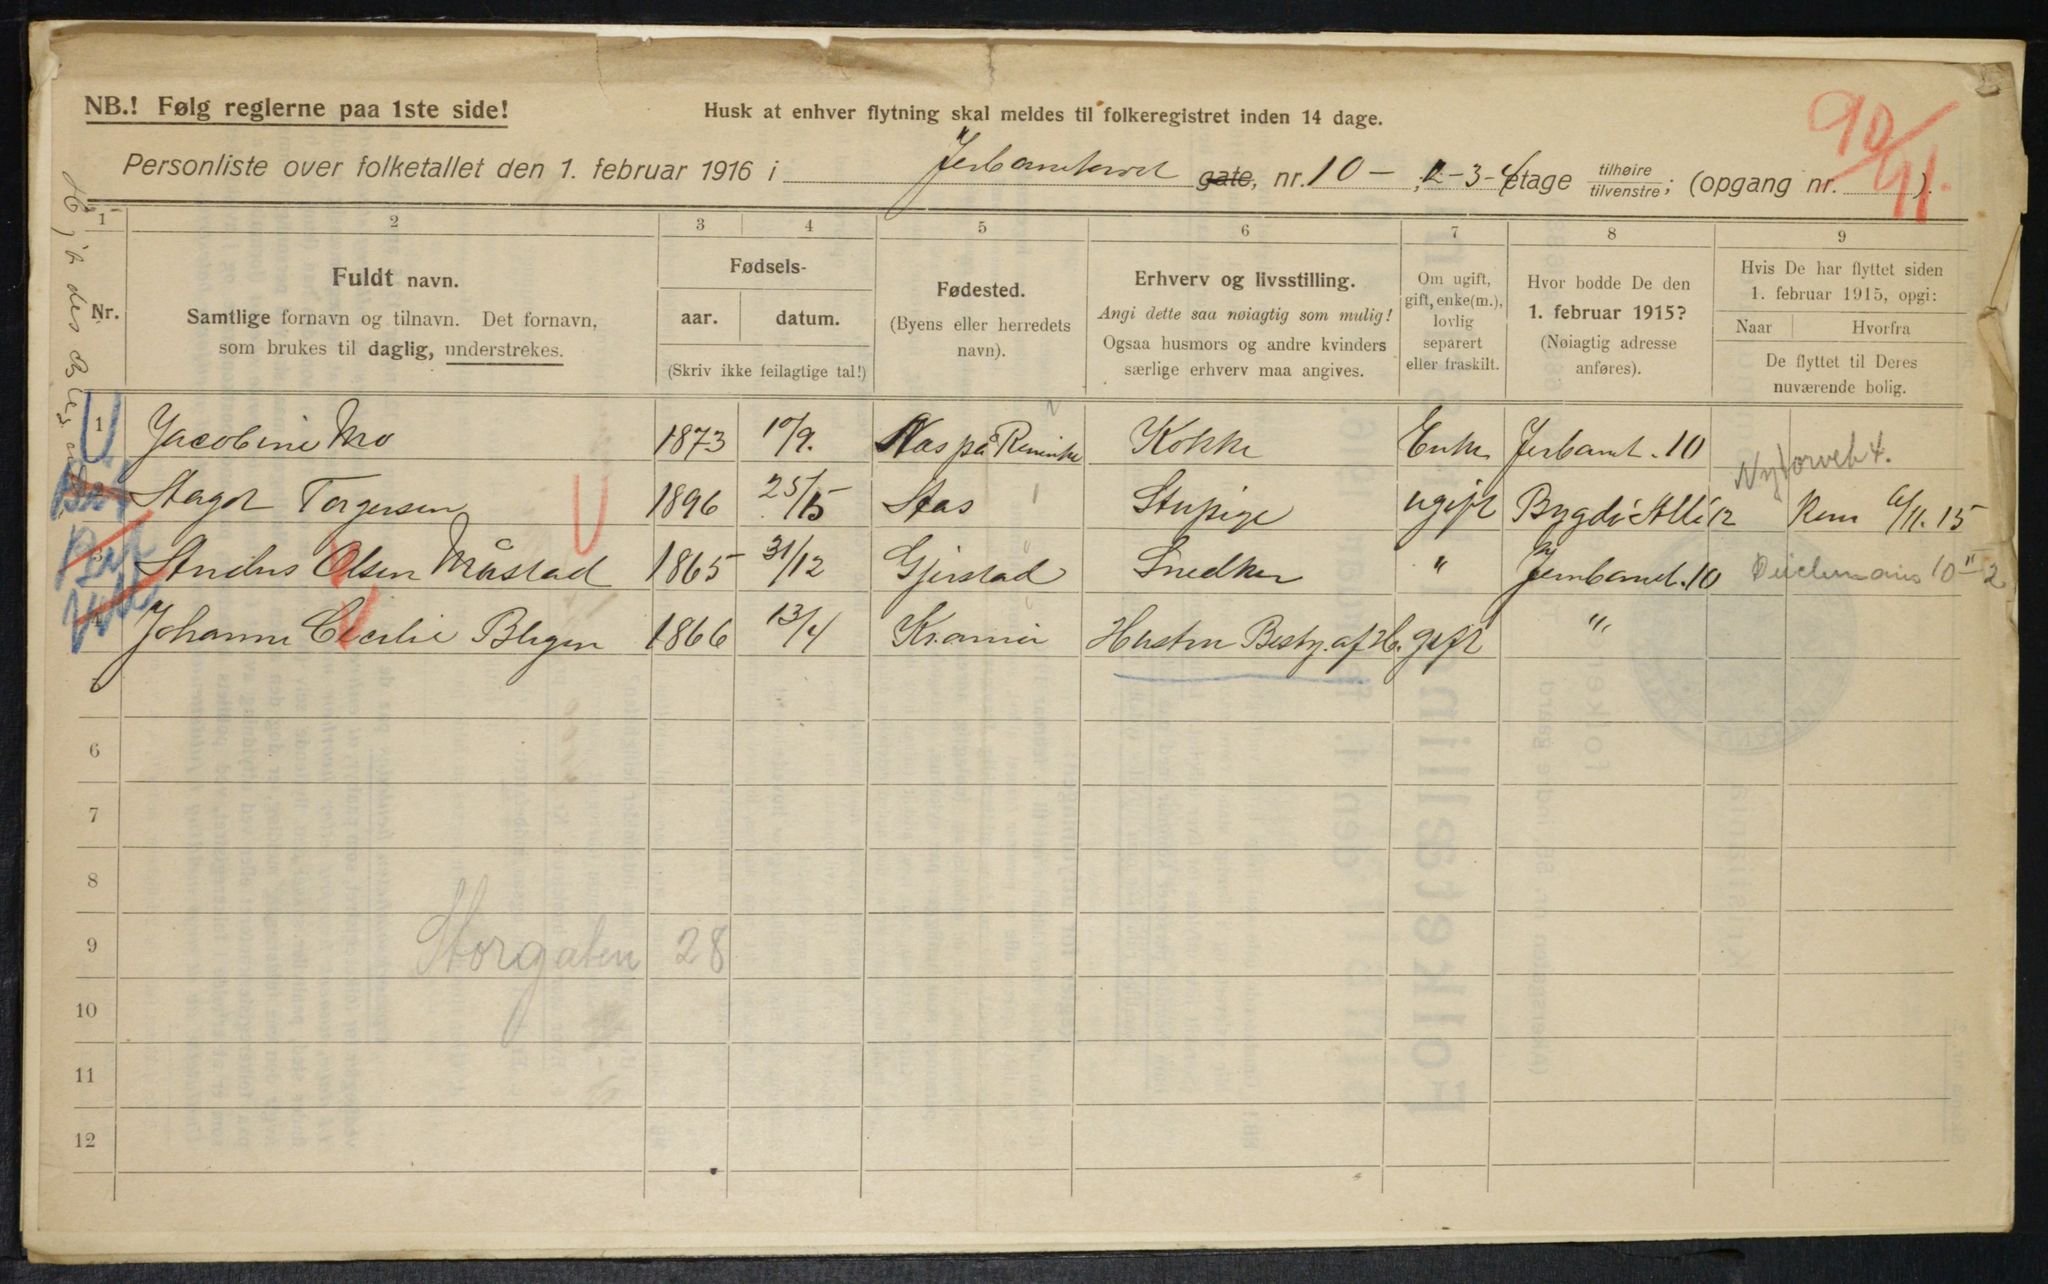 NB.! Følg reglerne paa 1ste side!
Husk at enhver flytning skal meldes til folkeregistret inden 14 dage.
90/91.
Personliste over folketallet den 1. februar 1916 i Jerbanetorvet gate, nr. 10 – 2-3-4 etage tilhøire/tilvenstre; (opgang nr. ).
1 2 3 4 5 6 7 8 9
Nr.
Fuldt navn.
Samtlige fornavn og tilnavn. Det fornavn,
som brukes til daglig, understrekes.
Fødsels-
aar. datum.
(Skriv ikke feilagtige tal!)
Fødested.
(Byens eller herredets
navn).
Erhverv og livsstilling.
Angi dette saa nøiagtig som mulig!
Ogsaa husmors og andre kvinders
særlige erhverv maa angives.
Om ugift,
gift, enke(m.),
lovlig
separert
eller fraskilt.
Hvor bodde De den
1. februar 1915?
(Nøiagtig adresse
anføres).
Hvis De har flyttet siden
1. februar 1915, opgi:
Naar Hvorfra
De flyttet til Deres
nuværende bolig.
1 Jacobine Mo 1873 10/9. Nas på Kokke Enke Jerbanet. 10
Nytorvet 4.
2 Torgersen 1896 25/5 Nas ugift Bygdø Allé 12 6/11. 15
3 Olsen Måstad 1865 31/12 Gjerstad Snedker " Jernbanet. 10 Deichmans 10 - 2
4 Johanne Cecilie 1866 13/4 Hustru Besty. af H. gift "
5
6
7
8
9 Storgaten 28
10
11
12